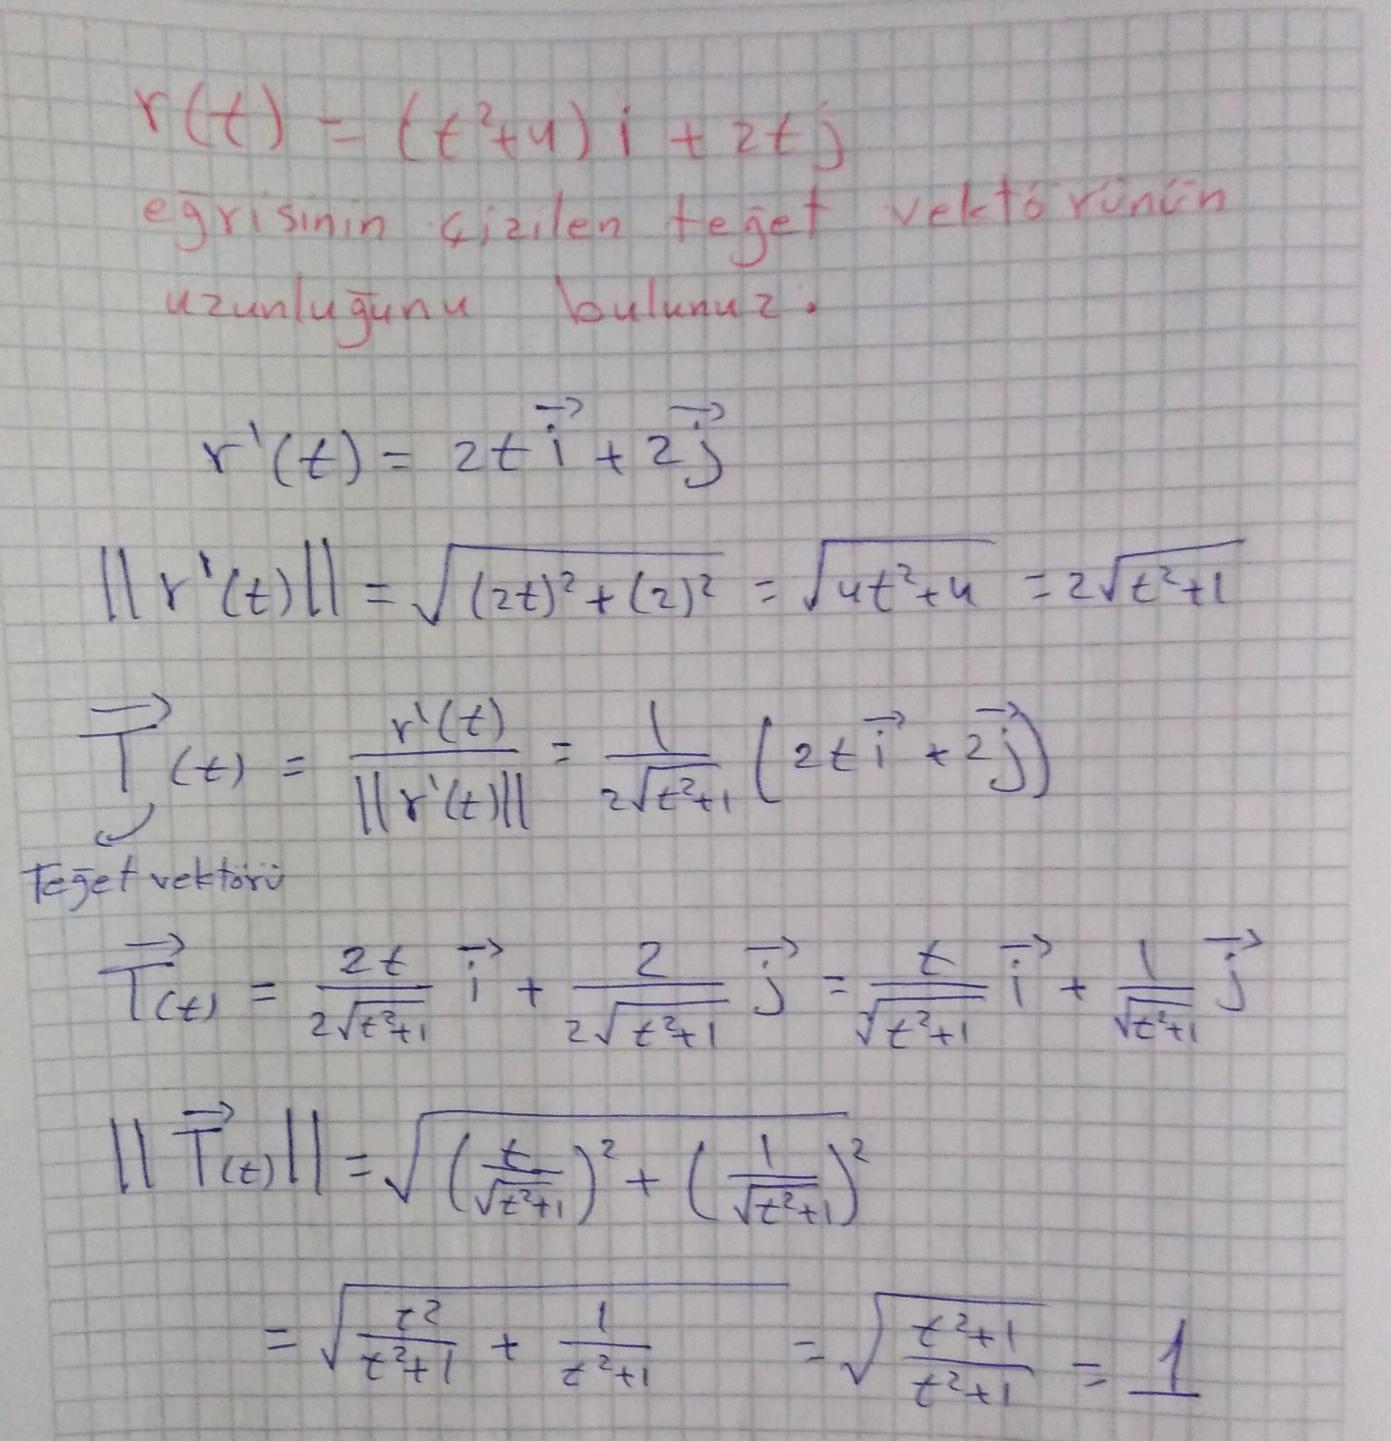 r(t) = (t²+4) i + 2t j
eğrisinin çizilen teğet vektörünün
uzunluğunu bulunuz.
r'(t) = 2t i⃗ + 2 j⃗
||r'(t)|| = √((2t)² + (2)²) = √(4t²+4) = 2√(t²+1)
T⃗(t) = r'(t) / ||r'(t)|| = 1 / (2√(t²+1)) (2t i⃗ + 2 j⃗)
Teğet vektörü
T⃗(t) = 2t / (2√(t²+1)) i⃗ + 2 / (2√(t²+1)) j⃗ = t / √(t²+1) i⃗ + 1 / √(t²+1) j⃗
||T⃗(t)|| = √((t / √(t²+1))² + (1 / √(t²+1))²)
= √(t² / (t²+1) + 1 / (t²+1)) = √((t²+1) / (t²+1)) = 1